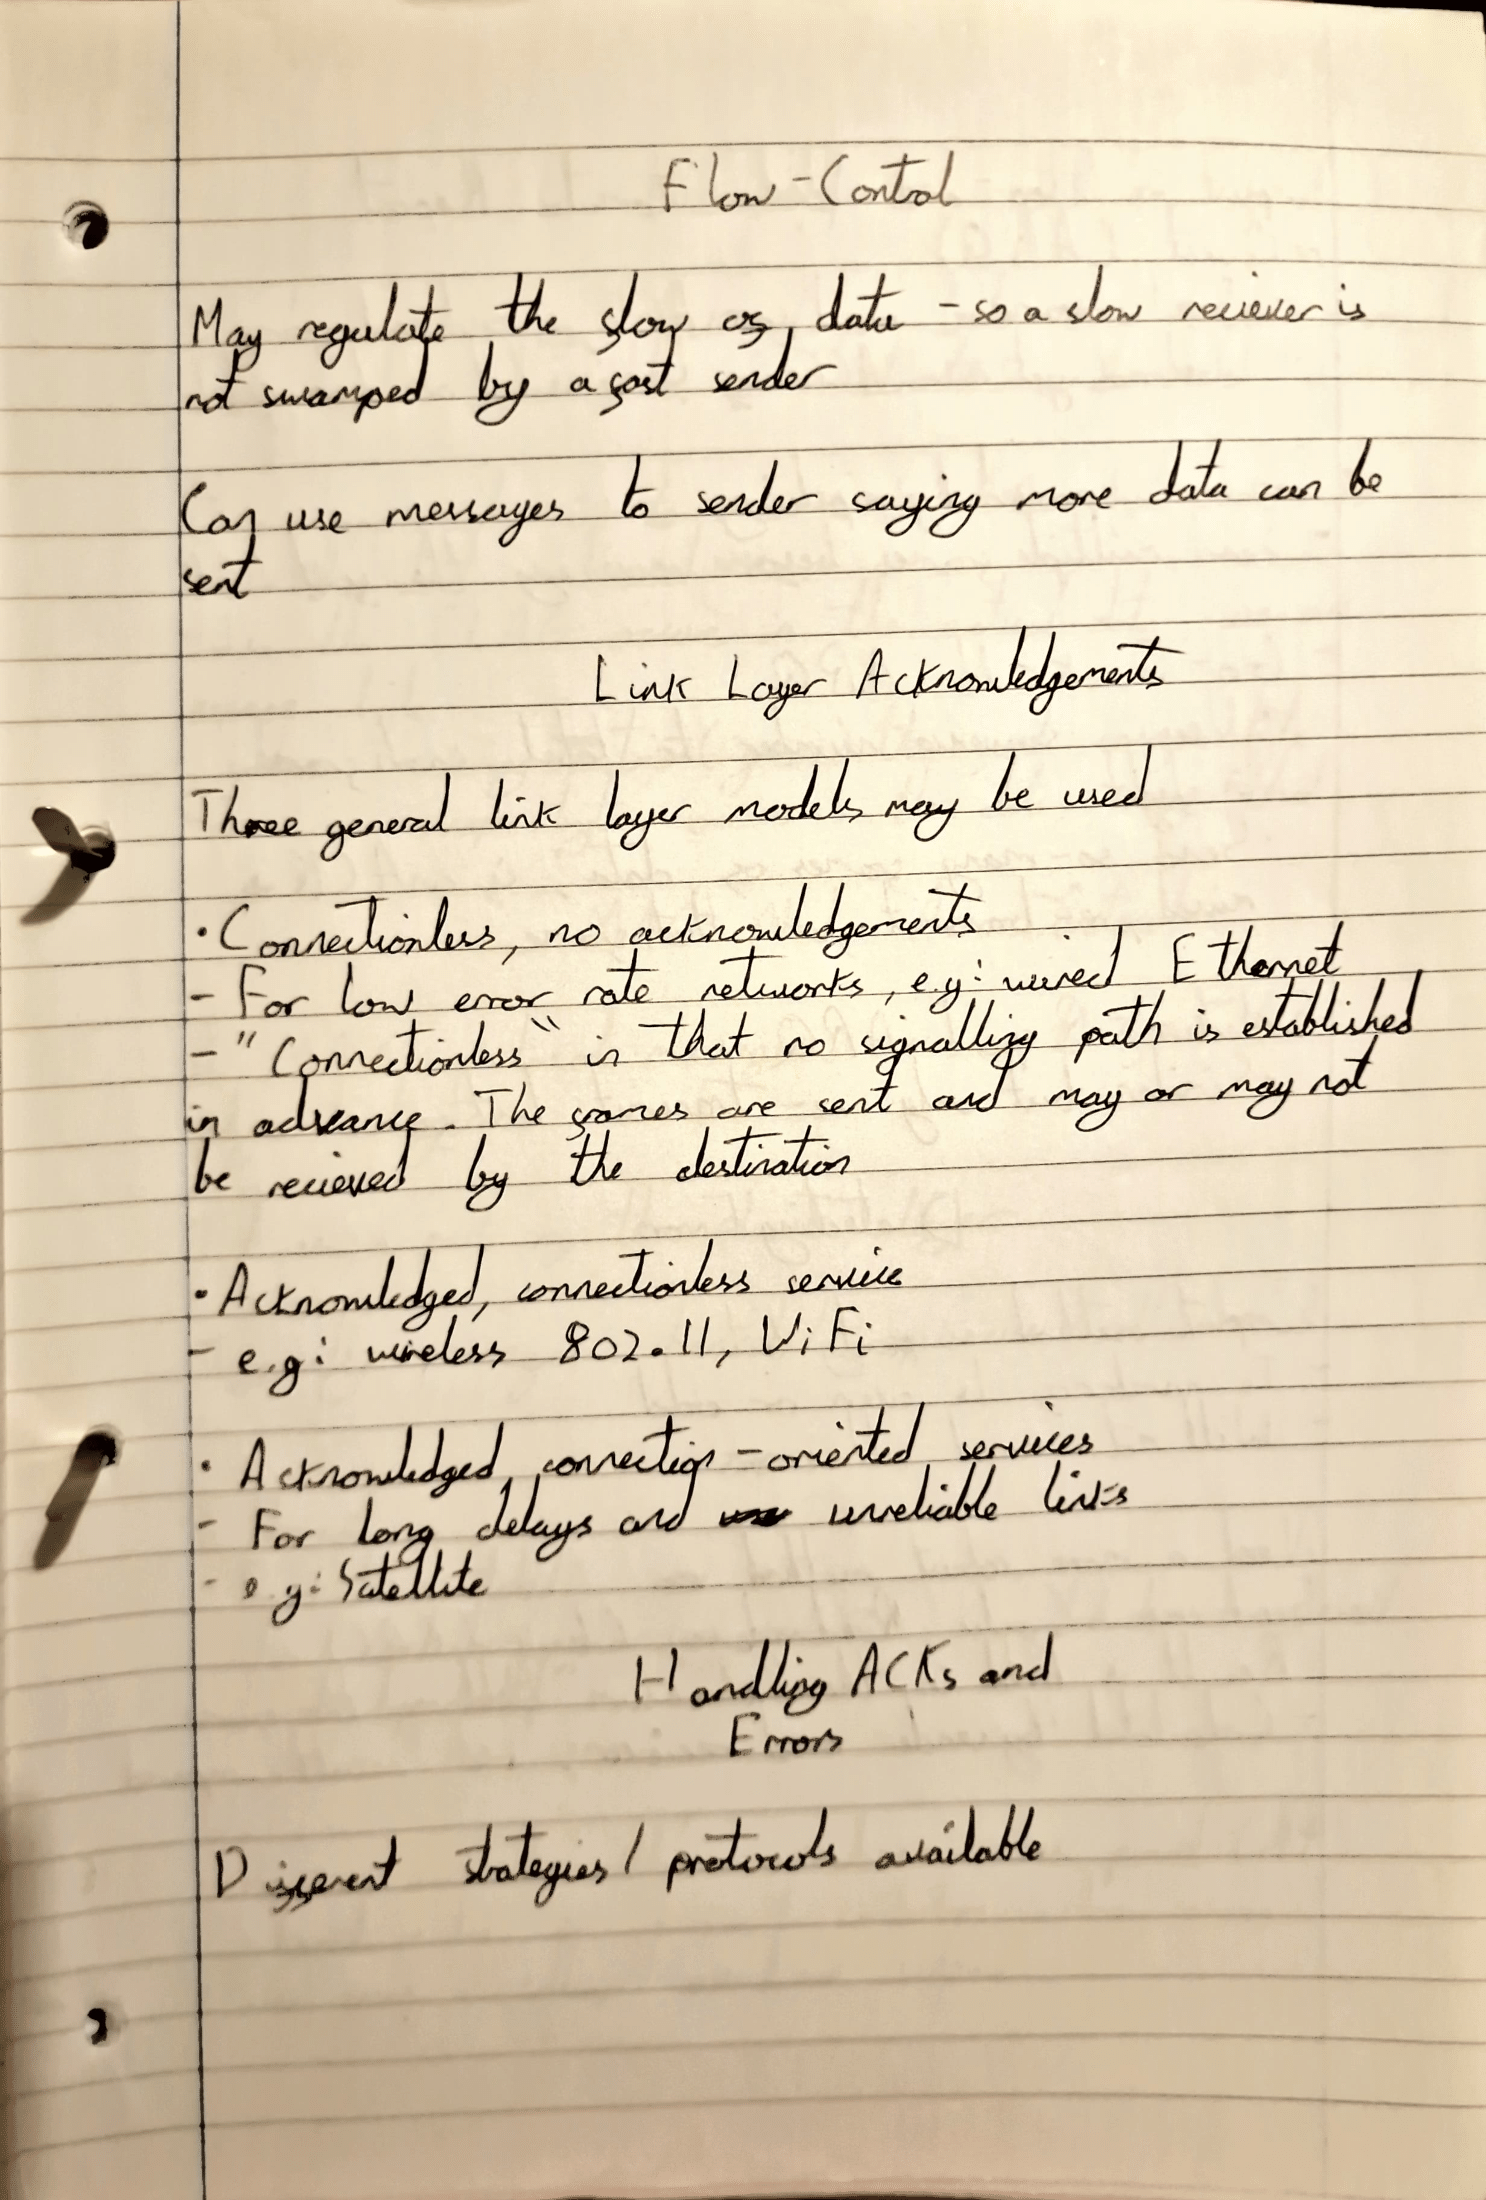 Flow-Control
May regulate the flow of data - so a slow reciever is
not swamped by a fast sender
Can use messages to sender saying more data can be
sent
Link Layer Acknowledgements
Three general link layer models may be used
· Connectionless, no acknowledgements
- For low error rate networks, e.g: wired Ethernet
- "Connectionless" in that no signalling path is established
in advance. The frames are sent and may or may not
be recieved by the destination
· Acknowledged, connectionless service
- e.g: wireless 802.11, WiFi
· Acknowledged, connection-oriented services
- For long delays and unreliable links
- e.g: Satellite
Handling ACKs and
Errors
Different strategies/protocols available